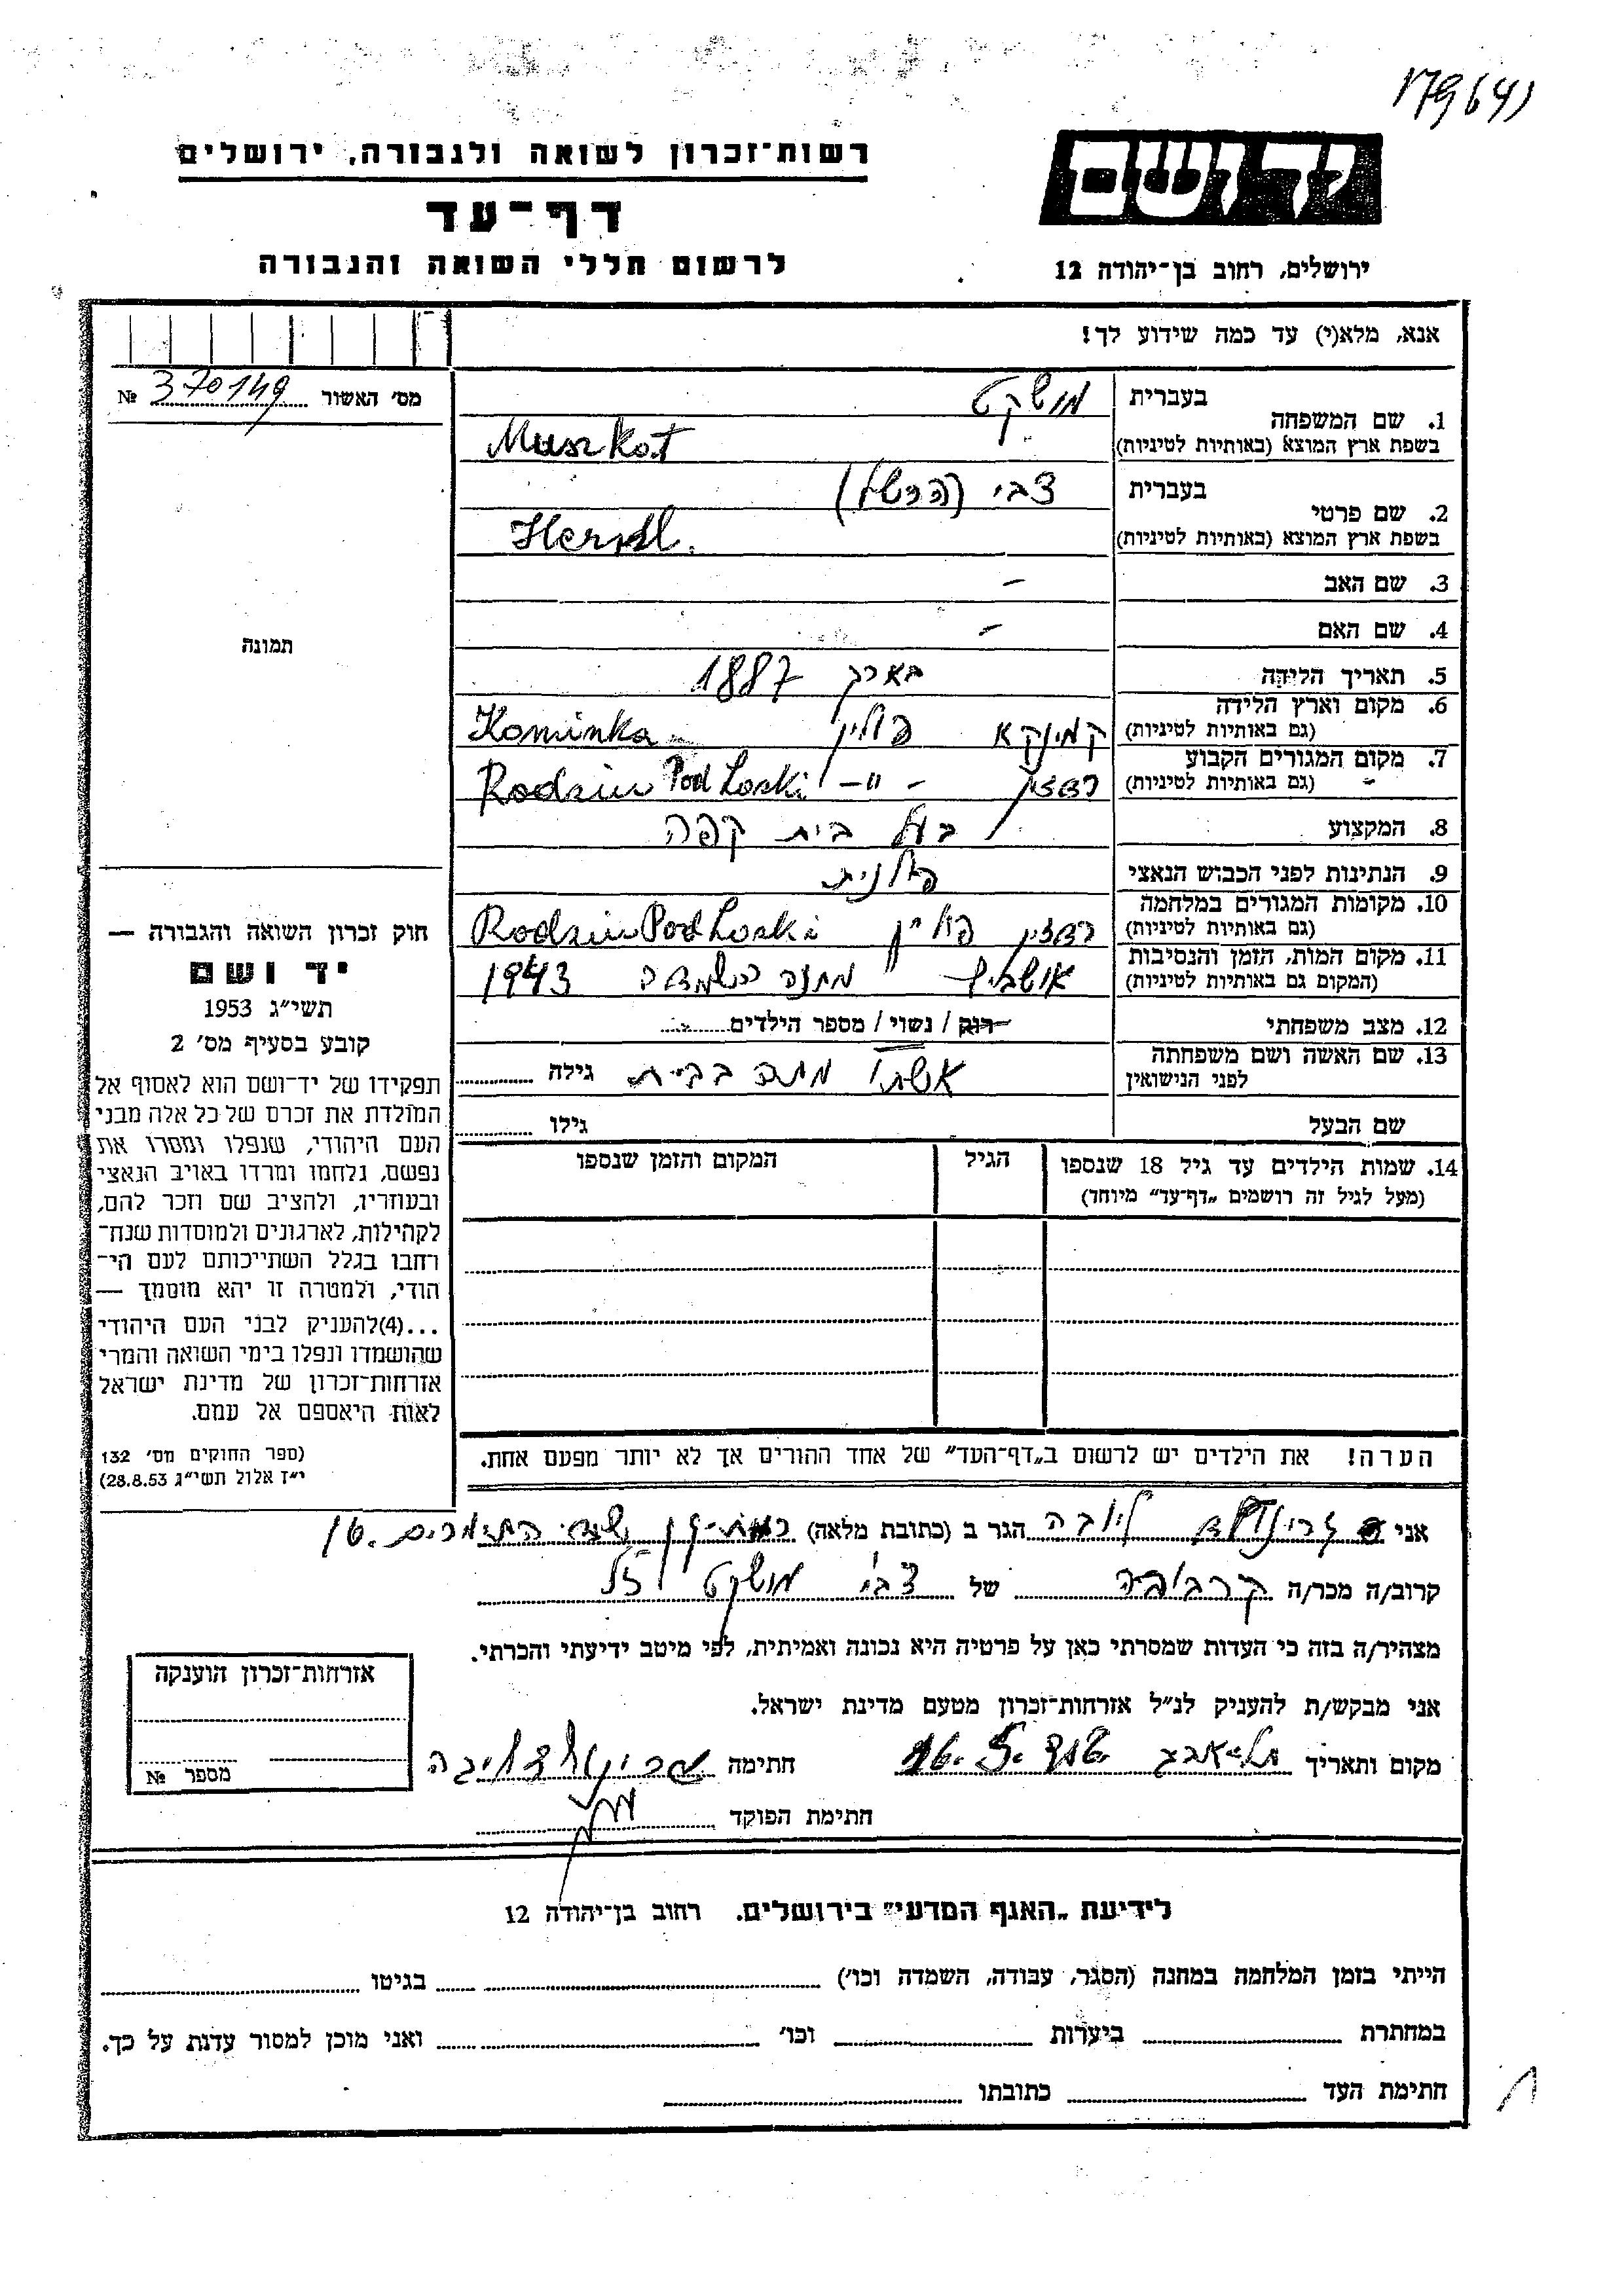 רשות־זכרון לשואה ולגבורה, ירושלים
דף־עד
לרשום חללי השואה והגבורה
יד ושם
ירושלים, רחוב בן־יהודה 12
אנא, מלא(י) עד כמה שידוע לך!
מס' האשור 370149 №
1. שם המשפחה
בעברית מושקט
בשפת ארץ המוצא (באותיות לטיניות) Muszkat
2. שם פרטי
בעברית צבי (הרשל)
בשפת ארץ המוצא (באותיות לטיניות) Hersl.
3. שם האב –
4. שם האם –
5. תאריך הלידה בארך 1887
6. מקום וארץ הלידה
(גם באותיות לטיניות) קמינקא פולין Kominka
7. מקום המגורים הקבוע
(גם באותיות לטיניות) רדזין – " – Rodzin Podloski
8. המקצוע בעל בית קפה
9. הנתינות לפני הכבוש הנאצי פולנית
10. מקומות המגורים במלחמה
(גם באותיות לטיניות) רדזין פולין Rodzin Podloski
11. מקום המות, הזמן והנסיבות
(המקום גם באותיות לטיניות) אושביץ מחנה השמדה 1943
12. מצב משפחתי רוק / נשוי / מספר הילדים
13. שם האשה ושם משפחתה
לפני הנישואין אשתו מתה בבית גילה
שם הבעל גילו
14. שמות הילדים עד גיל 18 שנספו הגיל המקום והזמן שנספו
(מעל לגיל זה רושמים „דף־עד" מיוחד)
הערה! את הילדים יש לרשום ב„דף־העד" של אחד ההורים אך לא יותר מפעם אחת.
תמונה
חוק זכרון השואה והגבורה —
יד ושם
תשי״ג 1953
קובע בסעיף מס' 2
תפקידו של יד־ושם הוא לאסוף אל
המולדת את זכרם של כל אלה מבני
העם היהודי, שנפלו ומסרו את
נפשם, נלחמו ומרדו באויב הנאצי
ובעוזריו, ולהציב שם וזכר להם,
לקהילות, לארגונים ולמוסדות שנח־
רחבו בגלל השתייכותם לעם הי־
הודי, ולמטרה זו יהא מוסמך —
...(4)להעניק לבני העם היהודי
שהושמדו ונפלו בימי השואה והמרי
אזרחות־זכרון של מדינת ישראל
לאות היאספם אל עמם.
(ספר החוקים מס' 132
י״ז אלול תשי״ג 28.8.53)
אני ליובה הגר ב (כתובת מלאה) רמת־גן
קרוב/ה מכר/ה קרובה של צבי מושקט ז״ל
מצהיר/ה בזה כי העדות שמסרתי כאן על פרטיה היא נכונה ואמיתית, לפי מיטב ידיעתי והכרתי.
אני מבקש/ת להעניק לנ״ל אזרחות־זכרון מטעם מדינת ישראל.
מקום ותאריך תל־אביב חתימה
חתימת הפוקד
אזרחות־זכרון הוענקה
מספר №
לידיעת „האגף המדעי" בירושלים. רחוב בן־יהודה 12
הייתי בזמן המלחמה במחנה (הסגר, עבודה, השמדה וכו') בגיטו
במחתרת ביערות וכו' ואני מוכן למסור עדות על כך.
חתימת העד כתובתו